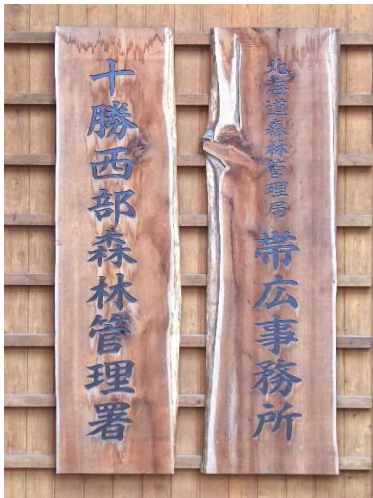 北海道森林管理局
帯広事務所
十勝西部森林管理署